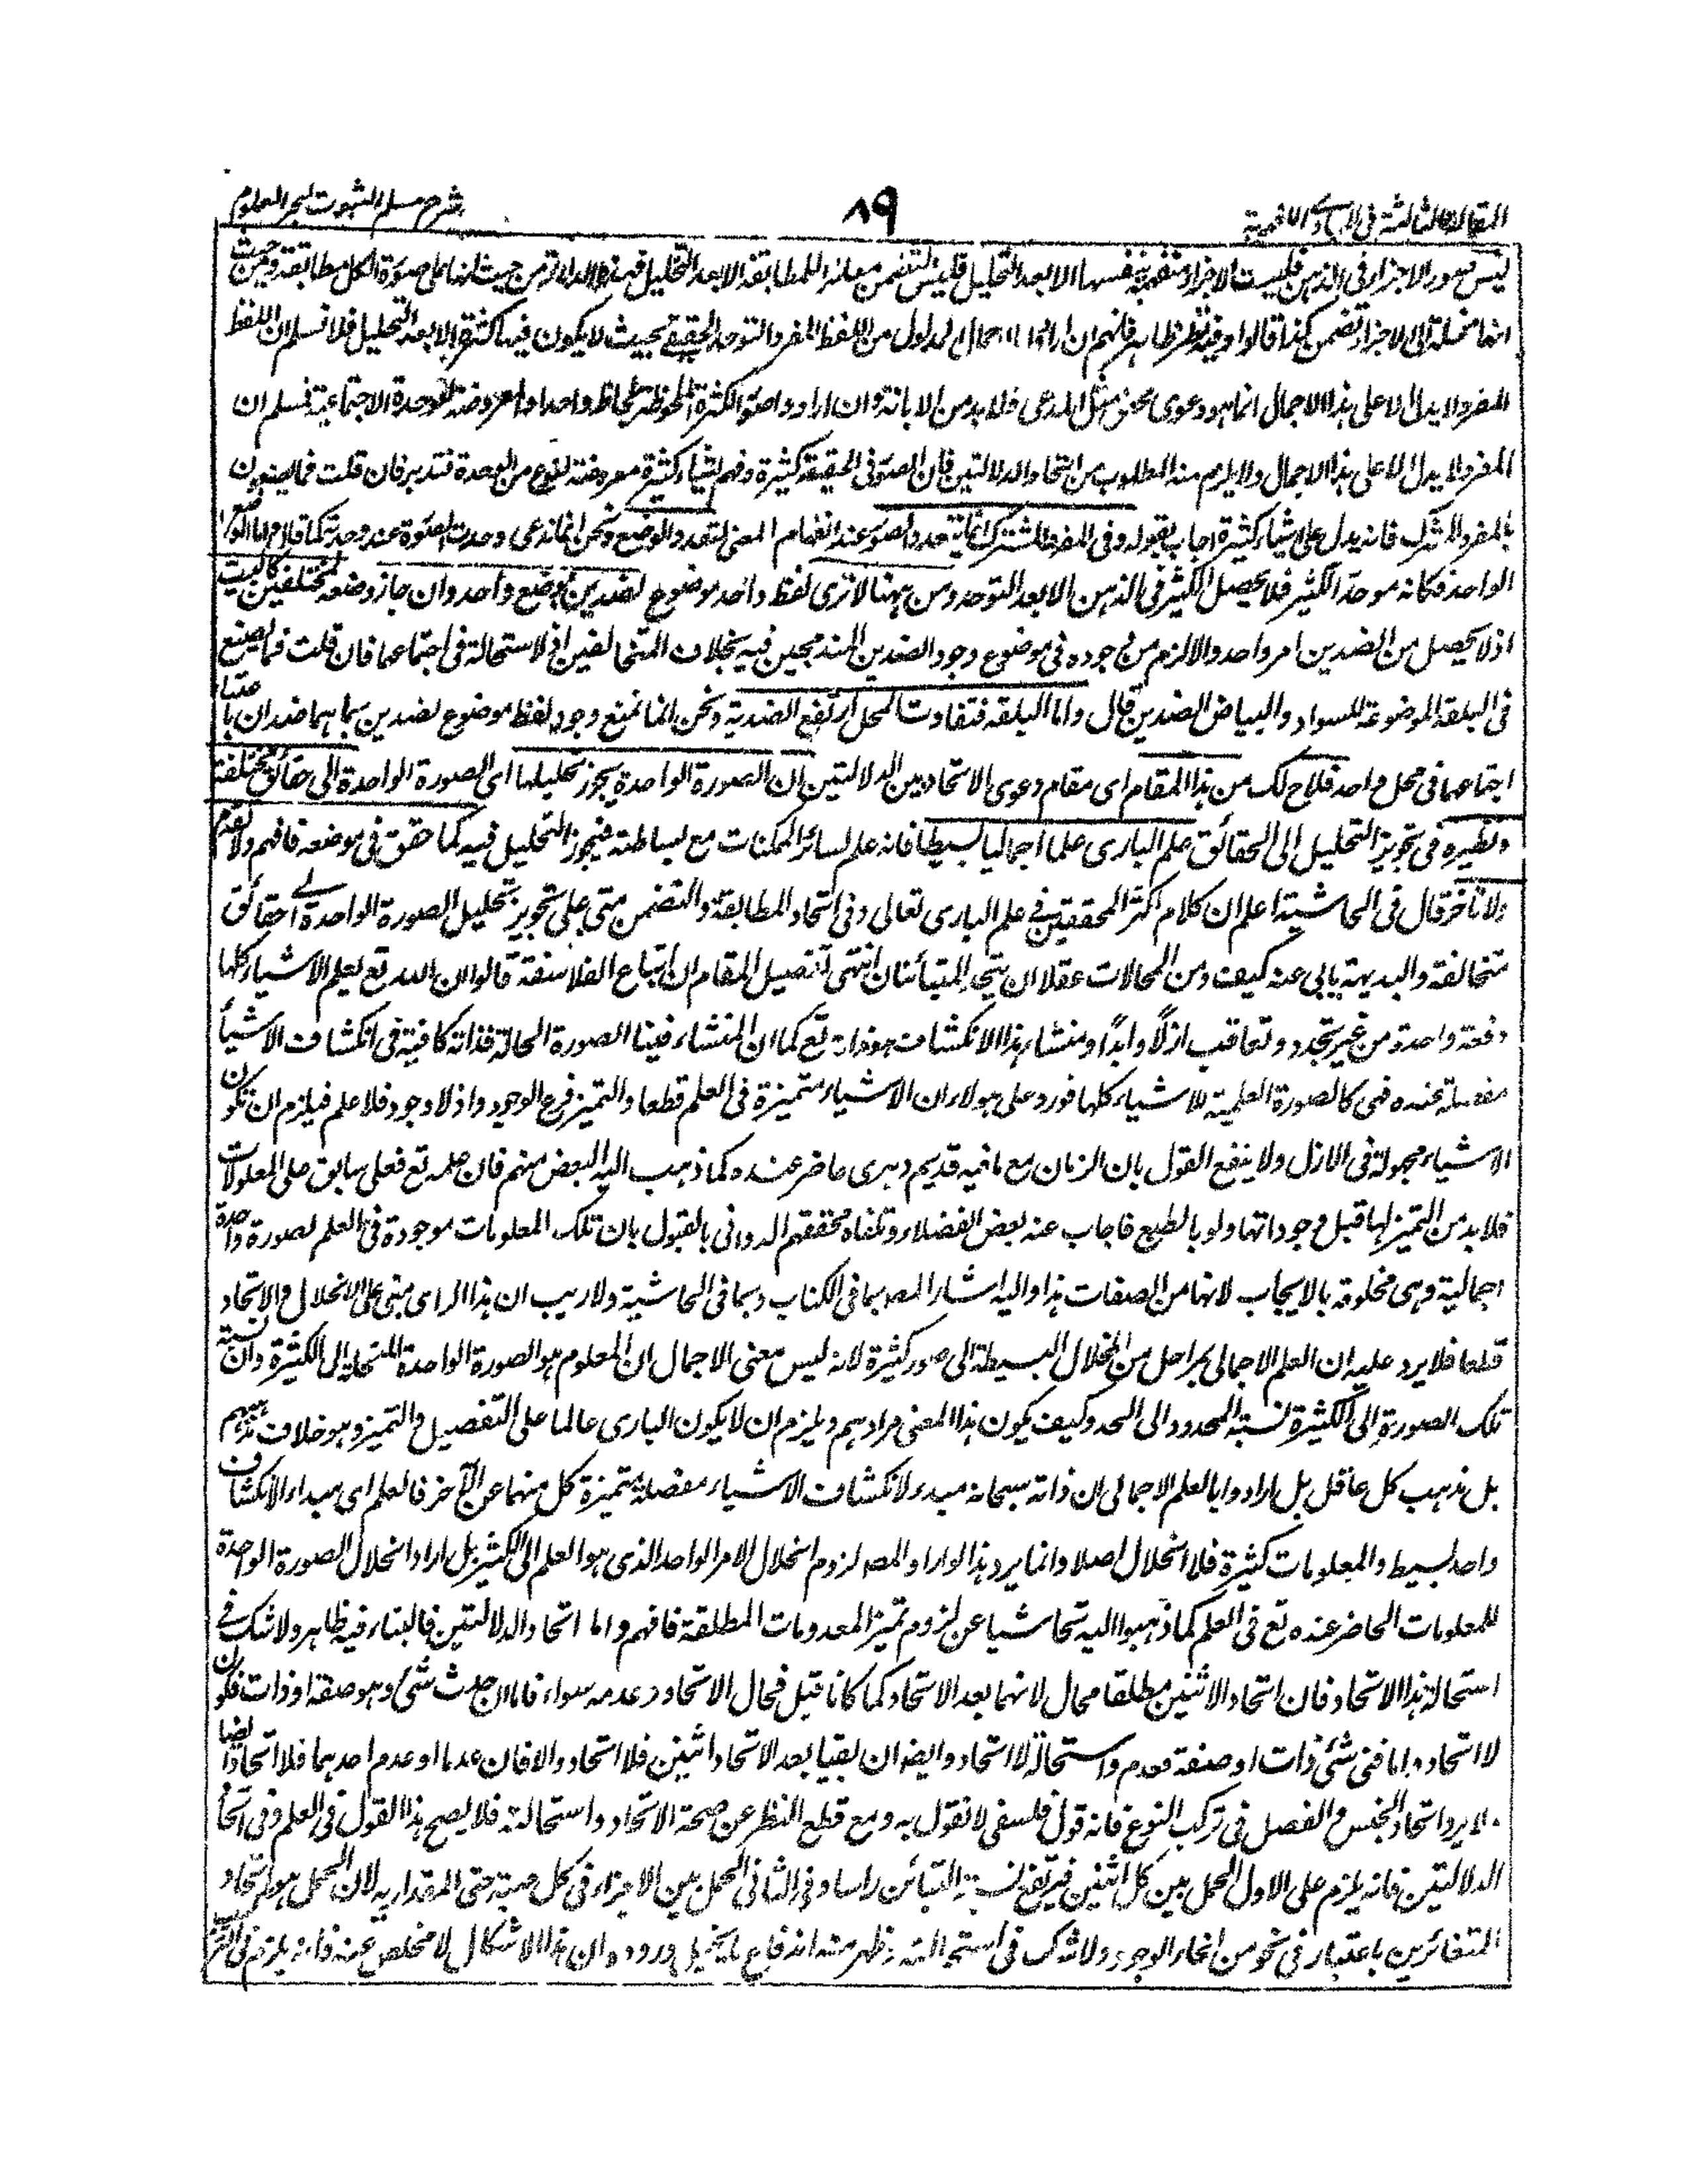 المقالة الثالثة في المبادي اللغوية
٨٩
شرح مسلم الثبوت لبحر العلوم
ليس صور الاجزاء في الذهن فليست الاجزاء منفهمة بنفسها الا بعد التحليل فليس التضمن مغائرا للمطابقة الا بعد التحليل فهذه الدلالة من حيث انها على صورة الكل مطابقة ومن حيث
انها منحلة الى الاجزاء تضمن كذا قالوا وفيه نظر ظاهر فانهم ان ارادوا الاجمال المدلول من اللفظ المفرد التوحد الحقيقي بحيث لا يكون فيها كثرة الا بعد التحليل فلا نسلم ان اللفظ
المفرد لا يدل الا على هذا الاجمال انما هو دعوى محض مثل المدعى فلابد من الابانة وان ارادوا صور الكثرة الملحوظة بلحاظ واحد والمعروضة للوحدة الاجتماعية فنسلم ان
المفرد لا يدل الا على هذا الاجمال ولا يلزم منه المطلوب من اتحاد الدلالتين فان الصور في الحقيقة كثيرة وفهم اشياء كثيرة معروضة لنوع من الوحدة فتدبر فان قلت فما يصنعون
بالمفرد المشترك فانه يدل على اشياء كثيرة اجاب بقوله وفي المفرد المشترك انما يتعدد الصور عند انفهام المعنى لتعدد الوضع ونحن انما ندعى وحدت الصورة عند وحدته كما قلا واما الوضع
الواحد فكانه موحد الكثير فلا يحصل الكثير في الذهن الا بعد التوحد ومن ههنا لا ترى لفظ واحد موضوع لضدين بوضع واحد وان جاز وضعه لمختلفين كالبيت
اذ لا يحصل من الضدين امر واحد والا لزم من وجوده في موضوع وجود الضدين المندمجين فيه بخلاف المتخالفين اذ لا استحالة في اجتماعهما فان قلت فما تصنع
في البلقة الموضوعة للسواد والبياض الضدين قال واما البلقة فتفاوت المحل ارتفع الضدية ونحن انما نمنع وجود لفظ موضوع لضدين بما هما ضدان باعتبار
اجتماعهما في محل واحد فلاح لك من هذا المقام اى مقام دعوى الاتحاد بين الدلالتين ان الصورة الواحدة يجوز تحليلها اى الصورة الواحدة الى حقائق مختلفة
ونظيره في تجويز التحليل الى الحقائق علم البارى علما اجماليا بسيطا فانه علم لسائر الممكنات مع بساطته فيجوز التحليل فيه كما حقق في موضعه فافهم ولا تقدم
ولا تأخر قال في الحاشية اعلم ان كلام اكثر المحققين في علم البارى تعالى وفي اتحاد المطابقة والتضمن مبتنى على تجويز تحليل الصورة الواحدة الى حقائق
متخالفة والبديهة يابى عنه كيف ومن المحالات عقلا ان يتحد المتبائنان انتهى تفصيل المقام ان اتباع الفلاسفة قالوا ان الله تع يعلم الاشياء كلها
دفعة واحدة من غير تجدد وتعاقب ازلًا وابدًا ومنشاء هذا الانكشاف هو ذاته تع كما ان المنشاء فينا الصورة الحالة فذاته كافية في انكشاف الاشيأ
مفصلة عنده فهى كالصورة العلمية للاشياء كلها فورد على هولاء ان الاشياء متميزة في العلم قطعا والتميز فرع الوجود واذ لا وجود فلا علم فيلزم ان تكون
الاشياء مجهولة في الازل ولا ينفع القول بان الزمان مع ما فيه قديم دهرى حاضر عنده كما ذهب اليه البعض منهم فان علمه تع فعلى سابق على المعلولات
فلابد من التميز لها قبل وجوداتها ولو بالطبع فاجاب عنه بعض الفضلاء وتلقاه محققهم الدوانى بالقبول بان تلك المعلومات موجودة في العلم لصورة واحدة
اجمالية وهى مخلوقة بالايجاب لانها من الصفات هذا واليه اشار المصه بما في الكتاب وبما في الحاشية ولا ريب ان هذا الراى مبنى على الانحلال والاتحاد
قطعا فلا يرد عليه ان العلم الاجمالى بمراحل من انحلال البسيطة الى صور كثيرة لانه ليس معنى الاجمال ان المعلوم هو الصورة الواحدة المنحلة الى الكثيرة وان نسبة
تلك الصورة الى الكثيرة نسبة المحدود الى الحد وكيف يكون هذا المعنى مرادهم ويلزم ان لا يكون البارى عالما على التفصيل والتميز وهو خلاف مذهبهم
بل مذهب كل عاقل بل ارادوا بالعلم الاجمالى ان ذاته سبحانه مبدء لانكشاف الاشياء مفصلة متميزة كل منهما عن الآخر فالعلم اى مبداء الانكشاف
واحد بسيط والمعلومات كثيرة فلا انحلال اصلا وانما يرد هذا لو اراد المصه لزوم انحلال الامر الواحد الذى هو العلم الى الكثير بل اراد انحلال الصورة الواحدة
للمعلومات الحاضر عنده تع في العلم كما ذهبوا اليه تحاشيا عن لزوم تميز المعدومات المطلقة فافهم واما اتحاد الدلالتين فالبناء فيه ظاهر ولا شك في
استحالة هذا الاتحاد فان اتحاد الاثنين مطلقا محال لانهما بعد الاتحاد كما كانا قبل فحال الاتحاد وعدمه سواء فاما ان حدث شئ وهو صفة او ذات فكون
لا اتحاد واما فنى شئ ذات او صفة فعدم واستحالة لا اتحاد وايضا ان بقيا بعد الاتحاد اثنين فلا اتحاد والا فان عدما او عدم احدهما فلا اتحاد ايضا
ولا يرد اتحاد الجنس والفصل في تركب النوع فانه قول فلسفى لا نقول به ومع قطع النظر عن صحة الاتحاد واستحالته فلا يصح هذا القول في العلم وفى اتحاد
الدلالتين فانه يلزم على الاول الحمل بين كل اثنين فيرتفع نسبة التبائن راسا وفى الثانى الحمل بين الاجزاء في كل مركب حتى المقدارية لان الحمل هو اتحاد
المتغائرين باعتبار في نحو من انحاء الوجود ولا شك في استحالته وظهر منه اندفاع ما يخيل وروده ان هذا الاشكال لا مخلص عنه فانه يلزم في